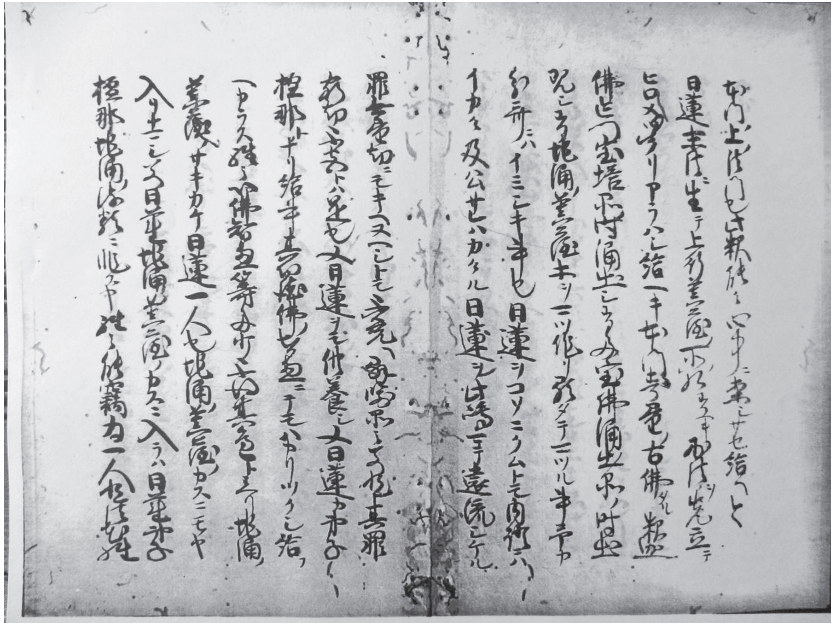 本門ノ上ノ法門也此釈能々心中ニ案シサセ給ヘト
日蓮末法ニ生テ上行菩薩所弘妙法ヲ先立テ
ヒロメツクリアラハシ給ヘキ本門寿量ノ古佛タル釈迦
佛迹門宝塔品ノ時涌出シ玉フ多宝佛涌出品ノ時出
現シ玉フ地涌ノ菩薩等ヲ一ツ作リ顕タテマツル事予カ
分斉ニハイミシキ事也日蓮ヲコソニクムトモ内証ニハ
イカヽ及公サレハカヽル日蓮ヲ此嶋マテ遠流シケル
罪無量劫ニモキヘヌヘシトモ不覚譬喩品ニ云若説其罪
窮劫不尽トハ是也又日蓮ヲモ供養シ又日蓮カ弟子
檀那トナリ給事其功徳佛智恵ニテモハカリツクシ給
ヘカラス経云以佛智恵籌量多少不得其辺ト云ヘリ地涌
菩薩ノサキカケ日蓮一人也地涌菩薩ノカスニモヤ
入ナマシ若日蓮地涌菩薩ノカスニ入ラハ日蓮弟子
檀那地涌流類ニ非スヤ経云能竊為一人説法花経